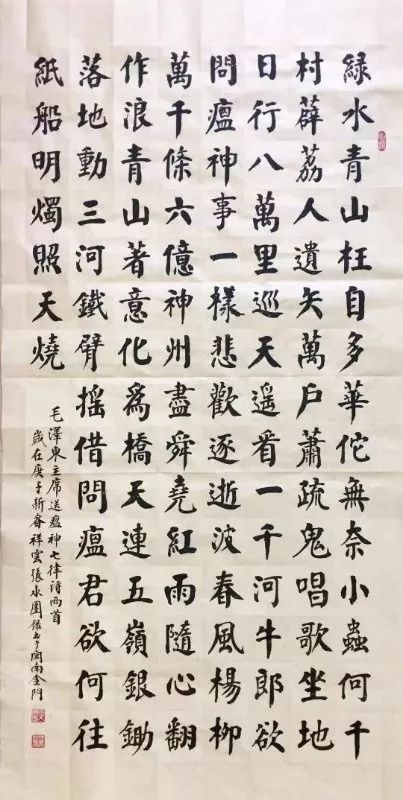 緑水青山枉自多華佗無奈小蟲何千
村薜荔人遺矢萬戶蕭疏鬼唱歌坐地
日行八萬里巡天遥看一千河牛郎欲
問瘟神事一樣悲歡逐逝波春風楊柳
萬千條六億神州盡舜堯紅雨隨心翻
作浪青山著意化為橋天連五嶺銀鋤
落地動三河鐵臂摇借問瘟君欲何往
紙船明燭照天燒
毛澤東主席送瘟神七律詩兩首
歲在庚子新春祥雲張水團閩南金門